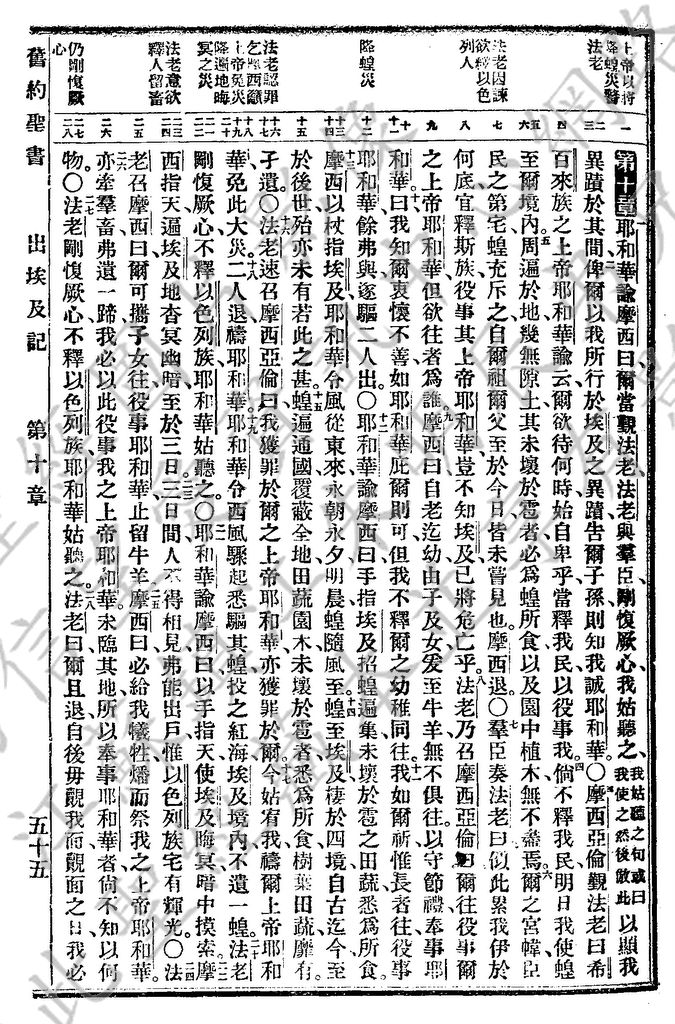 第十章耶和華諭摩西曰爾當覲法老法老與羣臣剛愎厥心我姑聽之我姑聽之句或曰我使之然後倣此以顯我
異蹟於其間俾爾以我所行於埃及之異蹟告爾子孫則知我誠耶和華○摩西亞倫覲法老曰希
百來族之上帝耶和華諭云爾欲待何時始自卑乎當釋我民以役事我倘不釋我民明日我使蝗
至爾境內周遍於地幾無隙土其未壞於雹者必爲蝗所食以及園中植木無不盡焉爾之宮幃臣
民之第宅蝗充斥之自爾祖爾父至於今日皆未嘗見也摩西退○羣臣奏法老曰似此累我伊於
何底宜釋斯族役事其上帝耶和華豈不知埃及已將危亡乎法老乃召摩西亞倫曰爾往役事爾
之上帝耶和華但欲往者爲誰摩西曰自老迄幼由子及女爰至牛羊無不俱往以守節禮奉事耶
和華曰我知爾衷懷不善如耶和華庇爾則可但我不釋爾之幼稚同往我如爾祈惟長者往役事
耶和華餘弗與遂驅二人出○耶和華諭摩西曰手指埃及招蝗遍集未壞於雹之田蔬悉爲所食
摩西以杖指埃及耶和華令風從東來永朝永夕明晨蝗隨風至至埃及棲於四境自古迄今至
於後世殆亦未有若此之甚蝗遍通國覆蔽全地田蔬園木未壞於雹者悉爲所食樹葉田蔬靡有
孑遺○法老速召摩西亞倫曰我獲罪於爾之上帝耶和華亦獲罪於爾今姑宥我禱爾上帝耶和
華免此大災二人退禱耶和華耶和華令西風驟起悉驅其蝗投之紅海埃及境內不遺一蝗法老
剛愎厥心不釋以色列族耶和華姑聽之○耶和華諭摩西曰以手指天使埃及晦冥暗中摸索摩
西指天遍埃及地杳冥幽暗至於三日三日間人不得相見弗能出戶惟以色列族宅有輝光○法
老召摩西曰爾可攜子女往役事耶和華止留牛羊摩西曰必給我犧牲燔而祭我之上帝耶和華
亦牽羣畜弗遺一蹄我必以此役事我之上帝耶和華未臨其地所以奉事耶和華者尚不知以何
物○法老剛愎厥心不釋以色列族耶和華姑聽之法老曰爾且退自後毋覲我而覿面之日我必
上帝以將降蝗災警法老
法老因諫欲釋以色列人
降蝗災
法老認罪乞摩西籲上帝免災
降遍地晦冥之災
法老意欲釋人留畜
仍剛愎厥心
舊約聖書 出埃及記 第十章 五十五